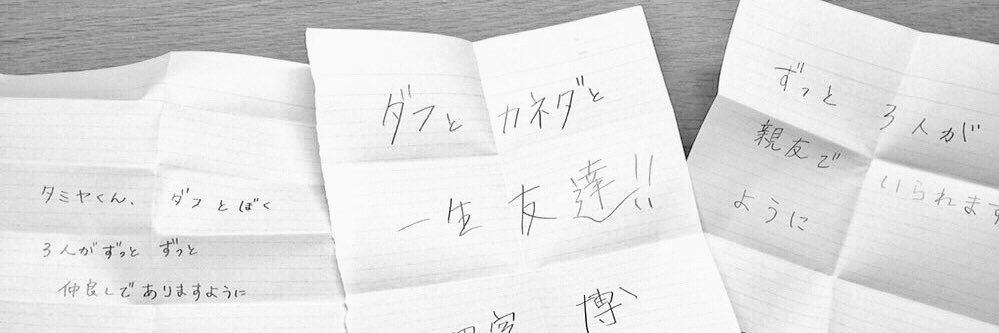 タミヤくん、ダフとぼく
3人がずっと ずっと
仲良しでありますように
ダフとカネダと
一生友達!!
宮 博
ずっと 3人が
親友で いられます
ように